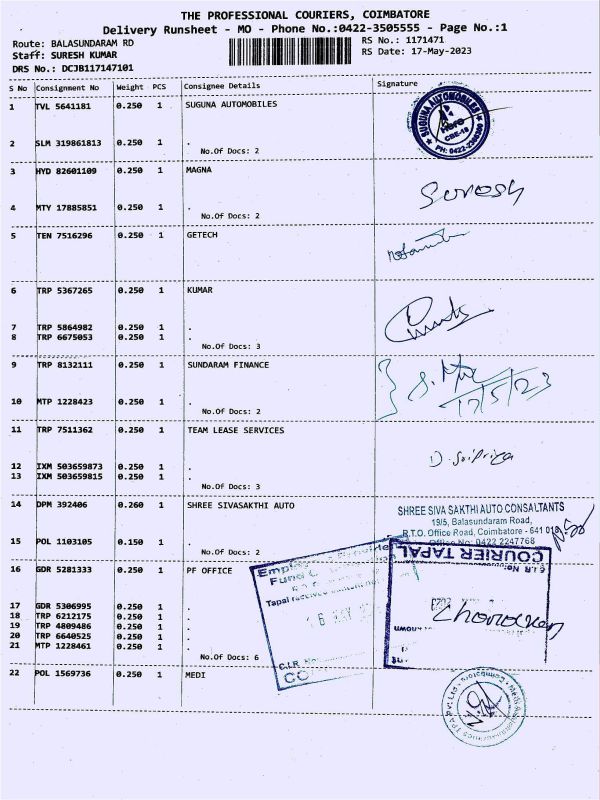 THE PROFESSIONAL COURIERS, COIMBATORE
Delivery Runsheet - MO - Phone No.:0422-3505555 - Page No.:1
Route: BALASUNDARAM RD
RS No.: 1171471
Staff: SURESH KUMAR
RS Date: 17-May-2023
DRS No.: DCJB117147101
S No Consignment No Weight PCS Consignee Details Signature
1 TVL 5641181 0.250 1 SUGUNA AUTOMOBILES
SUGUNA AUTOMOBILES
Hero
CBE-18
2 SLM 319861813 0.250 1 .
No.Of Docs: 2
3 HYD 82601109 0.250 1 MAGNA
Suresh
4 MTY 17885851 0.250 1 .
No.Of Docs: 2
5 TEN 7516296 0.250 1 GETECH
6 TRP 5367265 0.250 1 KUMAR
7 TRP 5864982 0.250 1 .
8 TRP 6675053 0.250 1 .
No.Of Docs: 3
9 TRP 8132111 0.250 1 SUNDARAM FINANCE
17/5/23
10 MTP 1228423 0.250 1 .
No.Of Docs: 2
11 TRP 7511362 0.250 1 TEAM LEASE SERVICES
D. Saipriya
12 IXM 503659873 0.250 1 .
13 IXM 503659815 0.250 1 .
No.Of Docs: 3
14 DPM 392406 0.260 1 SHREE SIVASAKTHI AUTO
SHREE SIVA SAKTHI AUTO CONSALTANTS
19/5, Balasundaram Road,
R.T.O. Office Road, Coimbatore - 641 018
Office No: 0422 2247768
15 POL 1103105 0.150 1 .
No.Of Docs: 2
COURIER TAPAL
16 GDR 5281333 0.250 1 PF OFFICE
17 GDR 5306995 0.250 1 .
18 TRP 6212175 0.250 1 .
19 TRP 4809486 0.250 1 .
20 TRP 6640525 0.250 1 .
21 MTP 1228461 0.250 1 .
No.Of Docs: 6
22 POL 1569736 0.250 1 MEDI